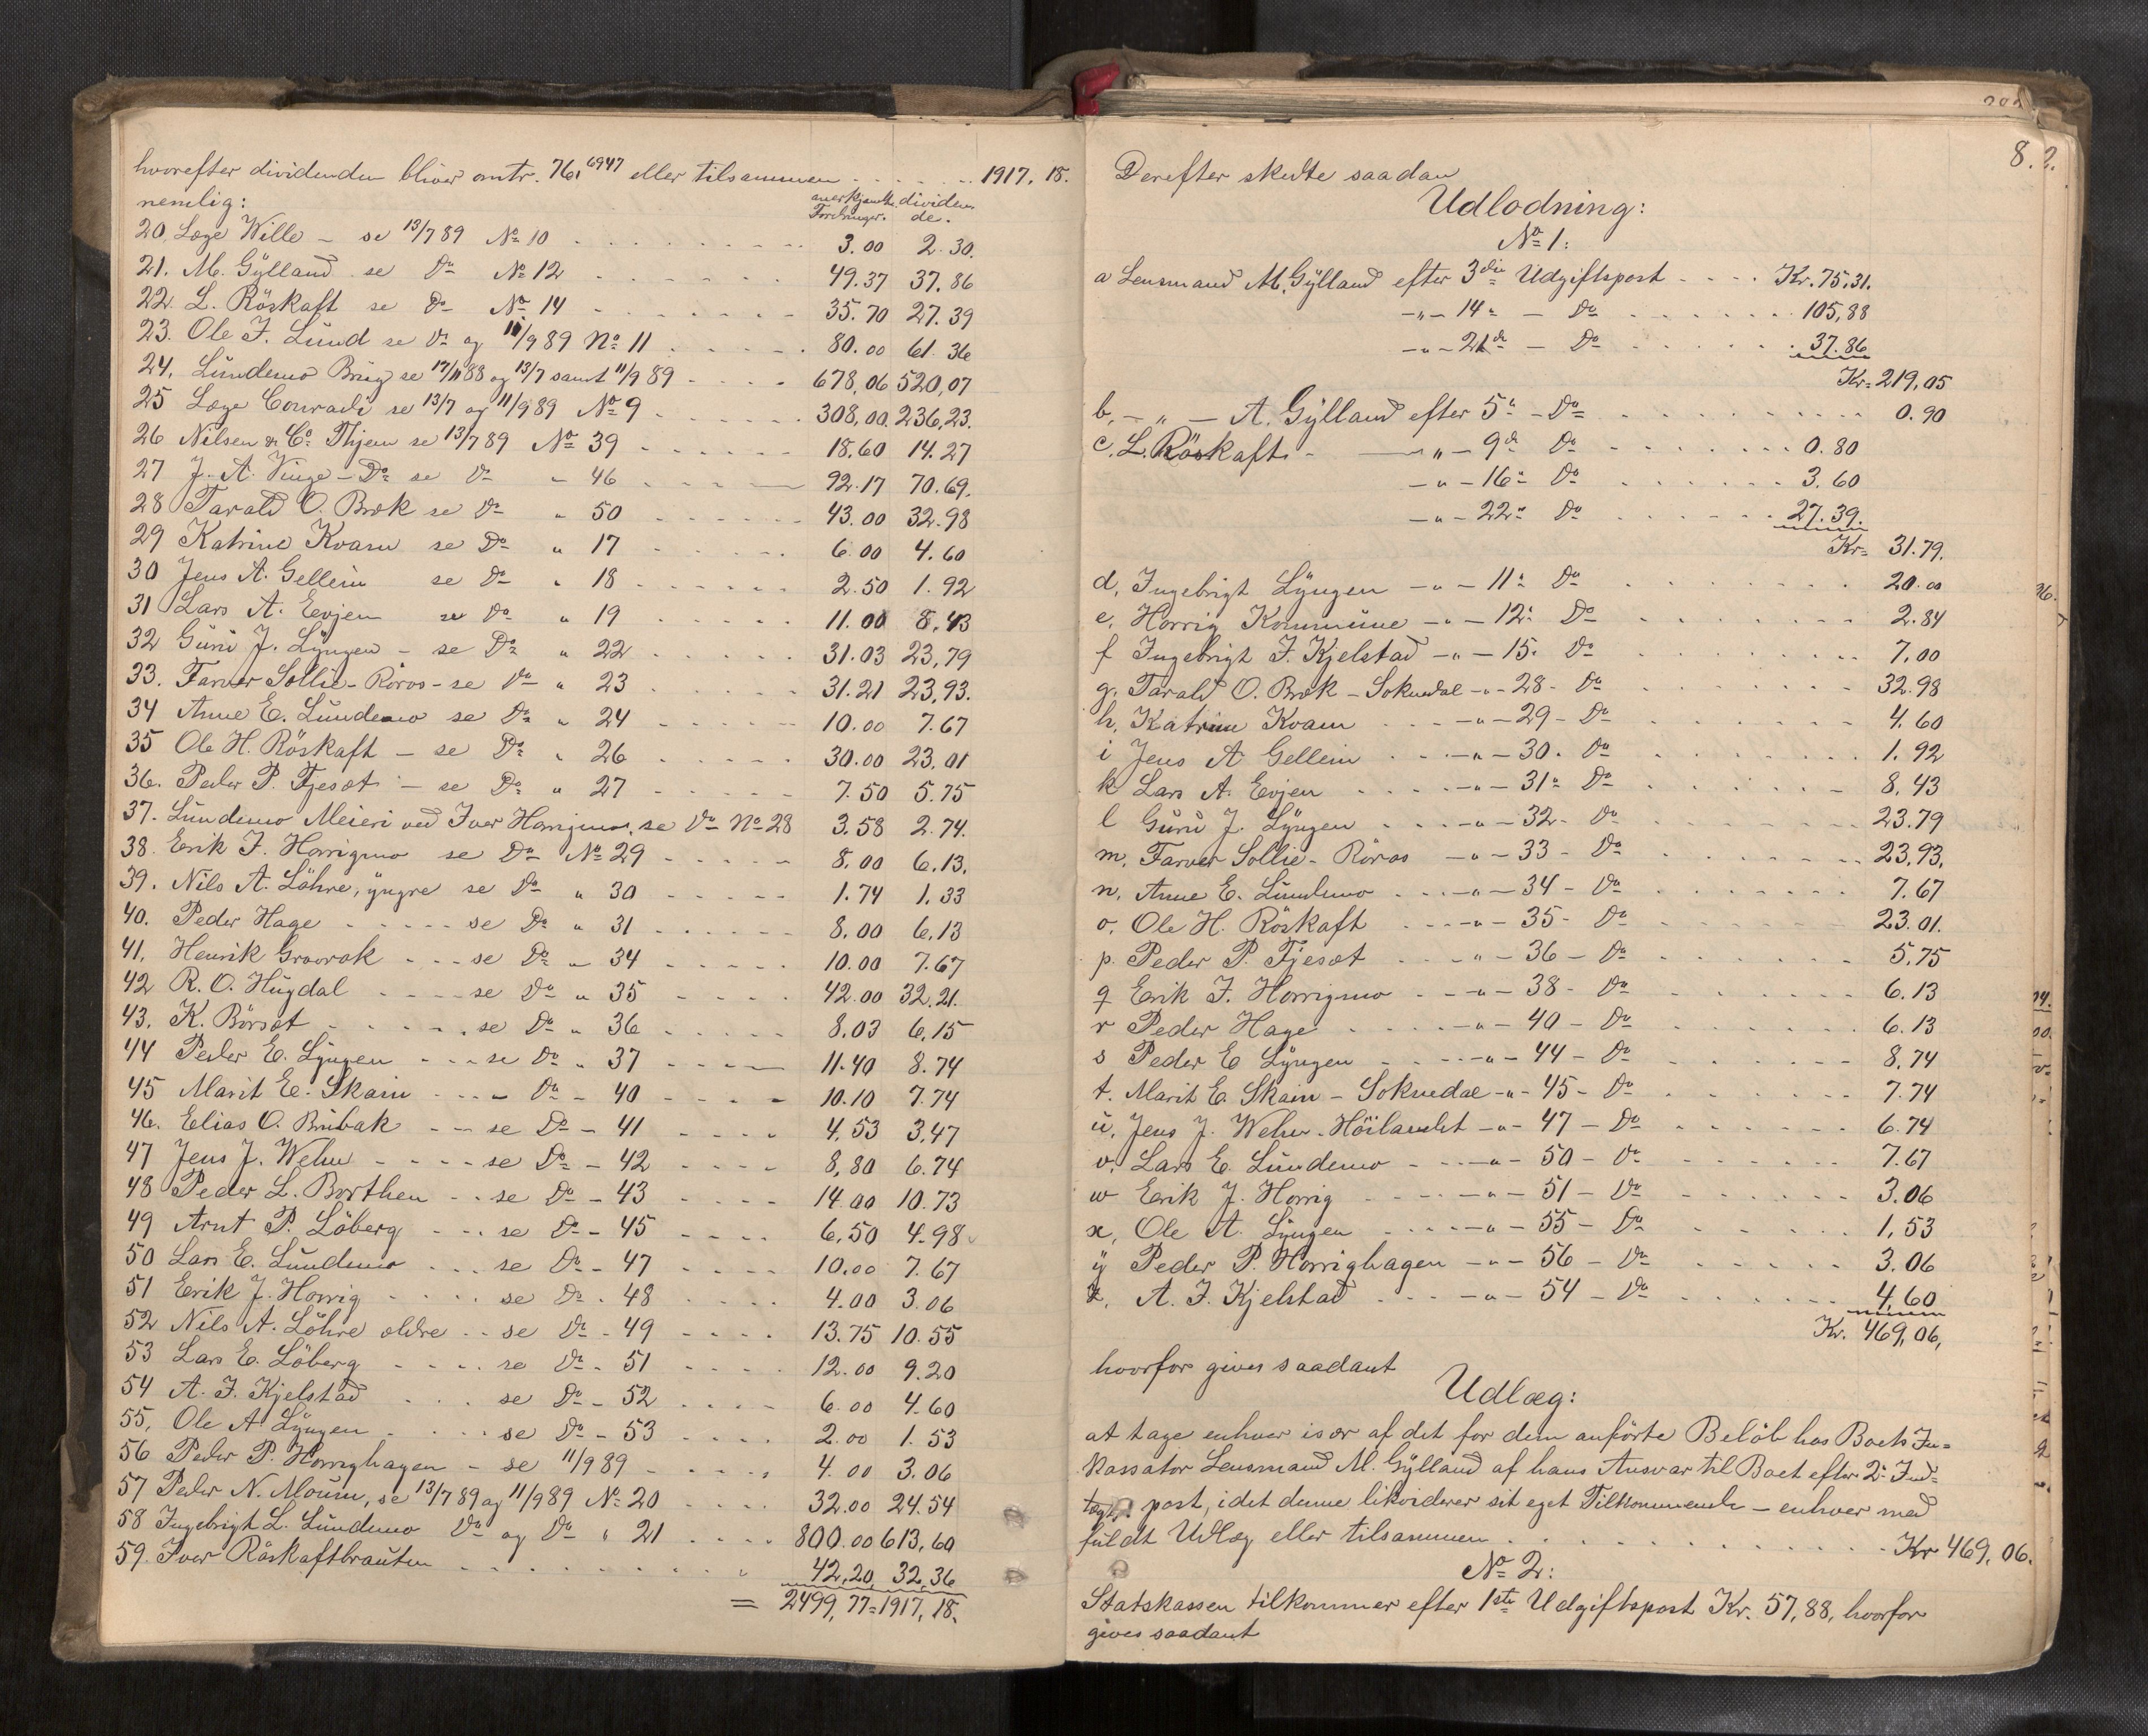 hvorefter dividenden bliver omtr. 76,6947 eller tilsammen - - - - 1917, 18.
nemlig: anerkjendte Fordringer. dividende.
20. Læge Wille - se 13/7 89 No 10 - - - - 3.00 2.30.
21. M. Gylland se Do No 12 - - - - 49.37 37.86
22. L. Röskaft se Do No 14 - - - - 35.70 27.39
23. Ole J. Lund se Do og 11/9 89 No 11 - - - - 80.00 61.36
24. Lundemo Brug se 17/11 88 og 13/7 samt 11/9 89 - - - - 678,06 520,07
25 Læge Conradi se 13/7 og 11/9 89 No 9 - - - - 308,00. 236,23.
26 Nilsen & Co Thjem se 13/7 89 No 39 - - - - 18.60 14.27
27 J. A. Vinge - Do se Do - 46 - - - - 92.17 70.69.
28 Tarald O. Bræk se Do " 50 - - - - 43.00 32.98
29 Katrine Kvam se Do " 17 - - - - 6.00 4.60
30 Jens A. Gellein se Do " 18 - - - - 2.50 1.92
31 Lars A. Evjen se Do " 19 - - - - 11.00 8,43
32 Guru J. Lyngen - se Do " 22 - - - - 31.03 23,79
33. Farver Sollie - Röros - se Do " 23 - - - - 31.21 23,93.
34 Anne E. Lundemo se Do " 24 - - - - 10.00 7.67
35 Ole H. Röskaft - se Do " 26 - - - - 30.00 23,01
36. Peder P. Fjeset - se Do " 27 - - - - 7.50 5.75
37. Lundemo Meieri ved Iver Horrigmo, se Do No 28 3.58 2.74.
38. Erik J. Horrigmo se Do No 29 - - - - 8.00 6.13.
39. Nils A. Löhre, yngre se Do " 30 - - - - 1.74 1.33
40. Peder Hage - - - - se Do " 31 - - - - 8,00 6,13
41. Henrik Grovrak - - - se Do " 34 - - - - 10.00 7.67
42 R. O. Hugdal - - - - se Do " 35 - - - - 42.00 32.21.
43. K. Börset - - - - se Do " 36 - - - - 8,03 6,15
44 Peder E. Lyngen - - - se Do " 37 - - - - 11.40 8.74
45 Marit E. Skain - - - Do - 40 - - - - 10.10 7.74
46. Elias O. Brubak - - se Do - 41 - - - - 4,53 3,47
47 Jens J. Wehn - - - - se Do - 42 - - - - 8,80 6.74
48 Peder L. Borthen - - se Do - 43 - - - - 14.00 10.73
49 Arnt P. Löberg - - - se Do - 45 - - - - 6,50 4.98
50 Lars E. Lundemo - - - se Do - 47 - - - - 10,00 7.67
51 Erik J. Horrig - - - - se Do - 48 - - - - 4.00 3.06
52 Nils A. Löhre ældre - - se Do - 49 - - - - 13.75 10.55
53 Lars E. Löberg - - - - se Do - 51 - - - - 12.00 9.20
54 A. J. Kjelstad - - - se Do - 52 - - - - 6.00 4.60
55, Ole A Lyngen - - - - se Do - 53 - - - - 2.00 1.53
56 Peder P. Horrighagen - se 11/9 89 - - - - 4.00 3.06
57 Peder N. Moum, se 13/7 89 og 11/9 89 No 20 - - - - 32.00 24.54
58 Ingebrigt L. Lundemo Do og Do " 21 - - - - 800.00 613,60
59. Iver Röskaftbrauten - - - - 42,20, 32,36
= 2499,77 = 1917,18.
8.
Derefter skedte saadan
Udlodning:
No 1:
a Lensmand M. Gylland efter 3die Udgiftspost - - - - Kr. 75,31.
- " - 14" - Do - - - - 105,88
- " - 21de - Do - - - - 37.86
Kr. 219,05
b, - " - A. Gylland efter 5" - Do - - - - 0.90
c, L. Röskaft - - " - 9de Do - - - - 0.80
- " - 16" Do - - - - 3.60
- " - 22" Do - - - - 27.39.
Kr. 31.79.
d, Ingebrigt Lyngen - " - 11" Do - - - - 20.00
e, Horrig Kommune - " - 12" Do - - - - 2.84
f Ingebrigt J. Kjelstad - " - 15" Do - - - - 7,00
g. Tarald O. Bræk - Soknedal - " - 28 - Do - - - - 32.98
h. Katrine Kvam - - - " - 29 - Do - - - - 4.60
i Jens A Gellein - - - " - 30. Do - - - - 1.92
k Lars A. Evjen - - - " - 31" Do - - - - 8,43
l Guru J. Lyngen - - - " - 32 - Do - - - - 23.79
m, Farver Sollie - Röros - " - 33 - Do - - - - 23,93.
n, Anne E. Lundemo - - - " - 34 - Do - - - - 7.67
o, Ole H. Röskaft - - - " - 35 - Do - - - - 23.01.
p. Peder P. Fjeset - - - " - 36 - Do - - - - 5,75
q Erik J. Horrigmo - - - " - 38 - Do - - - - 6.13
r Peder Hage - - - " - 40 - Do - - - - 6.13
s Peder E Lyngen - - - " - 44 - Do - - - - 8,74
t. Marit E. Skain - Soknedal - " - 45 - Do - - - - 7.74
u, Jens J. Wehn - Höilandet - " - 47 - Do - - - - 6.74
v, Lars E. Lundemo - - - " - 50 - Do - - - - 7.67
w Erik J. Horrig - - - " - 51 - Do - - - - 3.06
x, Ole A. Lyngen - - - " - 55 - Do - - - - 1,53
y Peder P. Horrighagen - " - 56 - Do - - - - 3.06
z, A. J. Kjelstad - - - " - 54 - Do - - - - 4,60
Kr. 469,06,
hvorfor gives saadant
Udlæg:
at tage enhver især af det for dem anförte Belöb hos Boets In-
kassator Lensmand M. Gylland af hans Ansvar til Boet efter 2" Ind-
tægts post, idet denne likviderer sit eget Tilkommende - enhver med
fuldt Udlæg eller tilsammen - - - - Kr 469,06.
No 2:
Statskassen tilkommer efter 1ste Udgiftspost Kr. 57,88, hvorfor
gives saadant